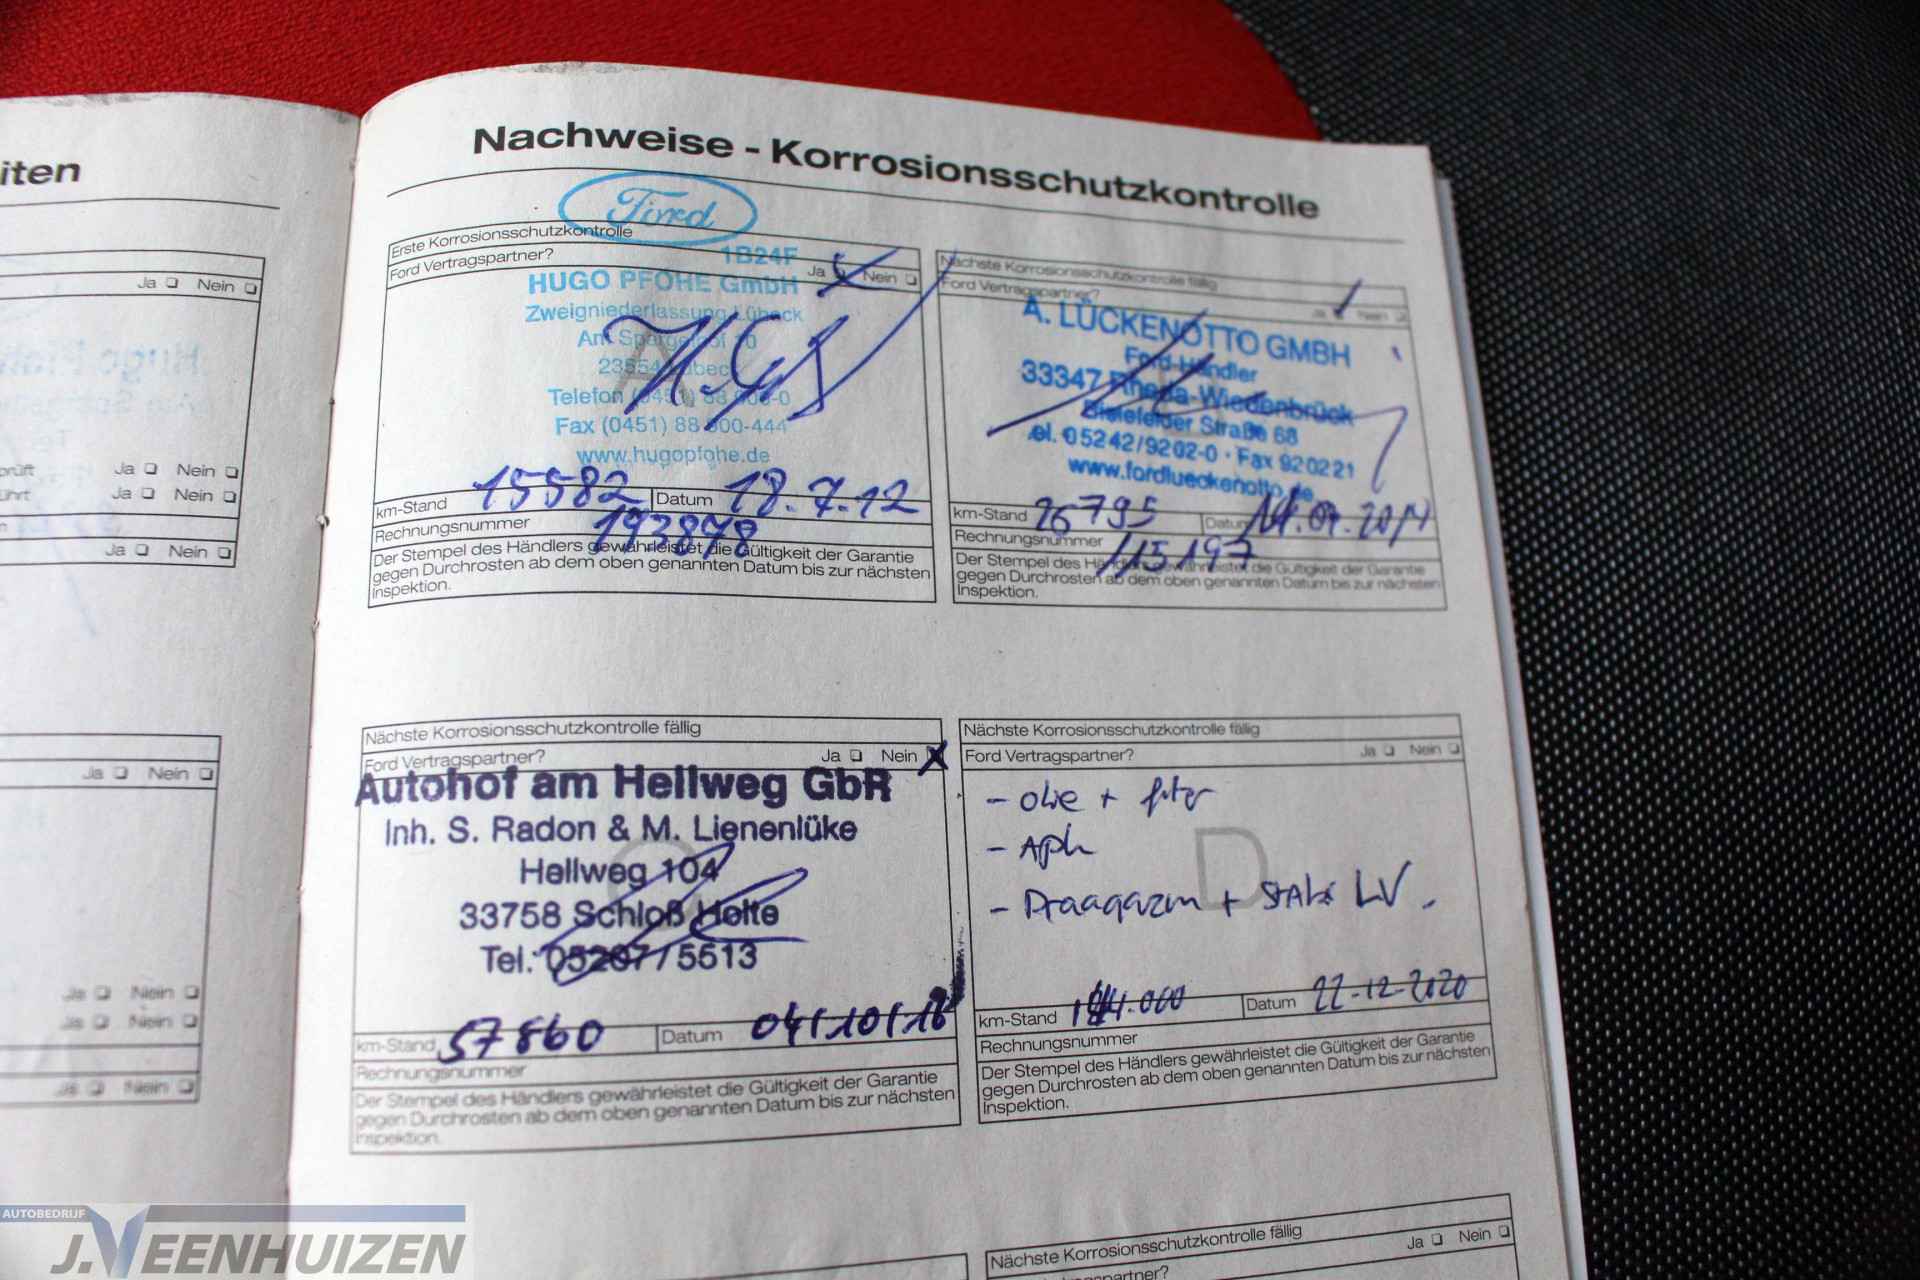 iten
Nachweise - Korrosionsschutzkontrolle
Ja Nein
prüft Ja Nein
ührt Ja Nein
Ja Nein
Ja Nein
Ja Nein
Ja Nein
Ja Nein
Ford
Erste Korrosionsschutzkontrolle
Ford Vertragspartner? Ja Nein
1B24F
HUGO PFOHE GmbH
Zweigniederlassung Lübeck
Am Spargelhof 10
23554 Lübeck
Telefon (0451) 88 900-0
Fax (0451) 88 900-444
www.hugopfohe.de
km-Stand 15582 Datum 18.7.12
Rechnungsnummer 193878
Der Stempel des Händlers gewährleistet die Gültigkeit der Garantie
gegen Durchrosten ab dem oben genannten Datum bis zur nächsten
Inspektion.
Nächste Korrosionsschutzkontrolle fällig
Ford Vertragspartner? Ja Nein
A. LÜCKENOTTO GMBH
Ford-Händler
33347 Rheda-Wiedenbrück
Bielefelder Straße 68
el. 05242/9202-0 · Fax 920221
www.fordlueckenotto.de
km-Stand 26795 Datum
Rechnungsnummer 115197
Der Stempel des Händlers gewährleistet die Gültigkeit der Garantie
gegen Durchrosten ab dem oben genannten Datum bis zur nächsten
Inspektion.
Nächste Korrosionsschutzkontrolle fällig
Ford Vertragspartner? Ja Nein
Autohof am Hellweg GbR
Inh. S. Radon & M. Lienenlüke
Hellweg 104
33758 Schloß Holte
Tel. 05207/5513
km-Stand 57860 Datum 04/10/16
Rechnungsnummer
Der Stempel des Händlers gewährleistet die Gültigkeit der Garantie
gegen Durchrosten ab dem oben genannten Datum bis zur nächsten
Inspektion.
Nächste Korrosionsschutzkontrolle fällig
Ford Vertragspartner? Ja Nein
- olie + filter
- APK
- Draagarm + stabi LV.
D
km-Stand Datum 22-12-2020
Rechnungsnummer
Der Stempel des Händlers gewährleistet die Gültigkeit der Garantie
gegen Durchrosten ab dem oben genannten Datum bis zur nächsten
Inspektion.
Nächste Korrosionsschutzkontrolle fällig
Ja Nein
AUTOBEDRIJF
J.VEENHUIZEN